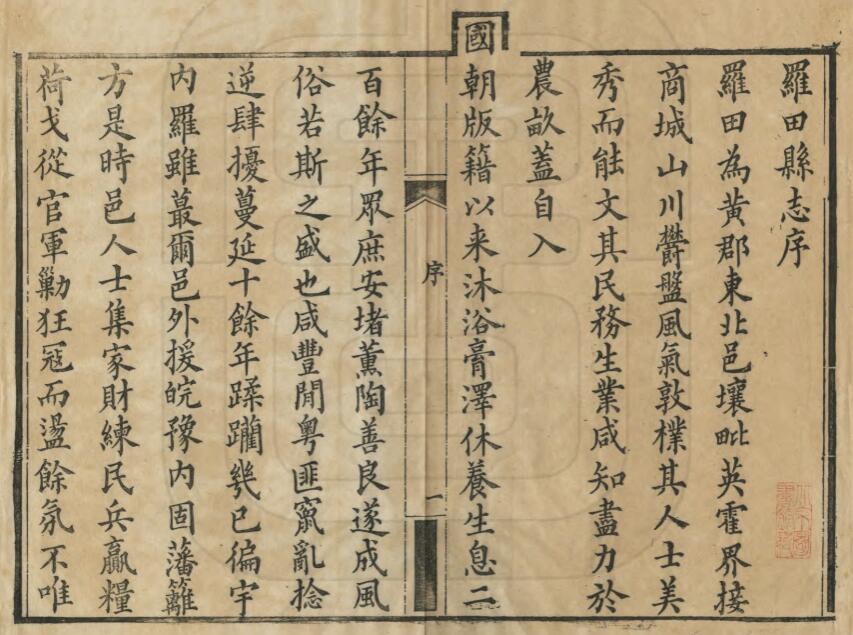 羅田縣志序
羅田為黃郡東北邑壤毗英霍界接
商城山川欝盤風氣敦樸其人士美
秀而能文其民務生業咸知盡力於
農畝蓋自入
國朝版籍以来沐浴膏澤休養生息二
序
一
百餘年眾庶安堵薰陶善良遂成風
俗若斯之盛也咸豐閒粵匪竄亂捻
逆肆擾蔓延十餘年蹂躪幾已徧宇
内羅雖蕞爾邑外援皖豫内固藩籬
方是時邑人士集家財練民兵贏糧
荷戈從官軍勦狂冦而盪餘氛不唯